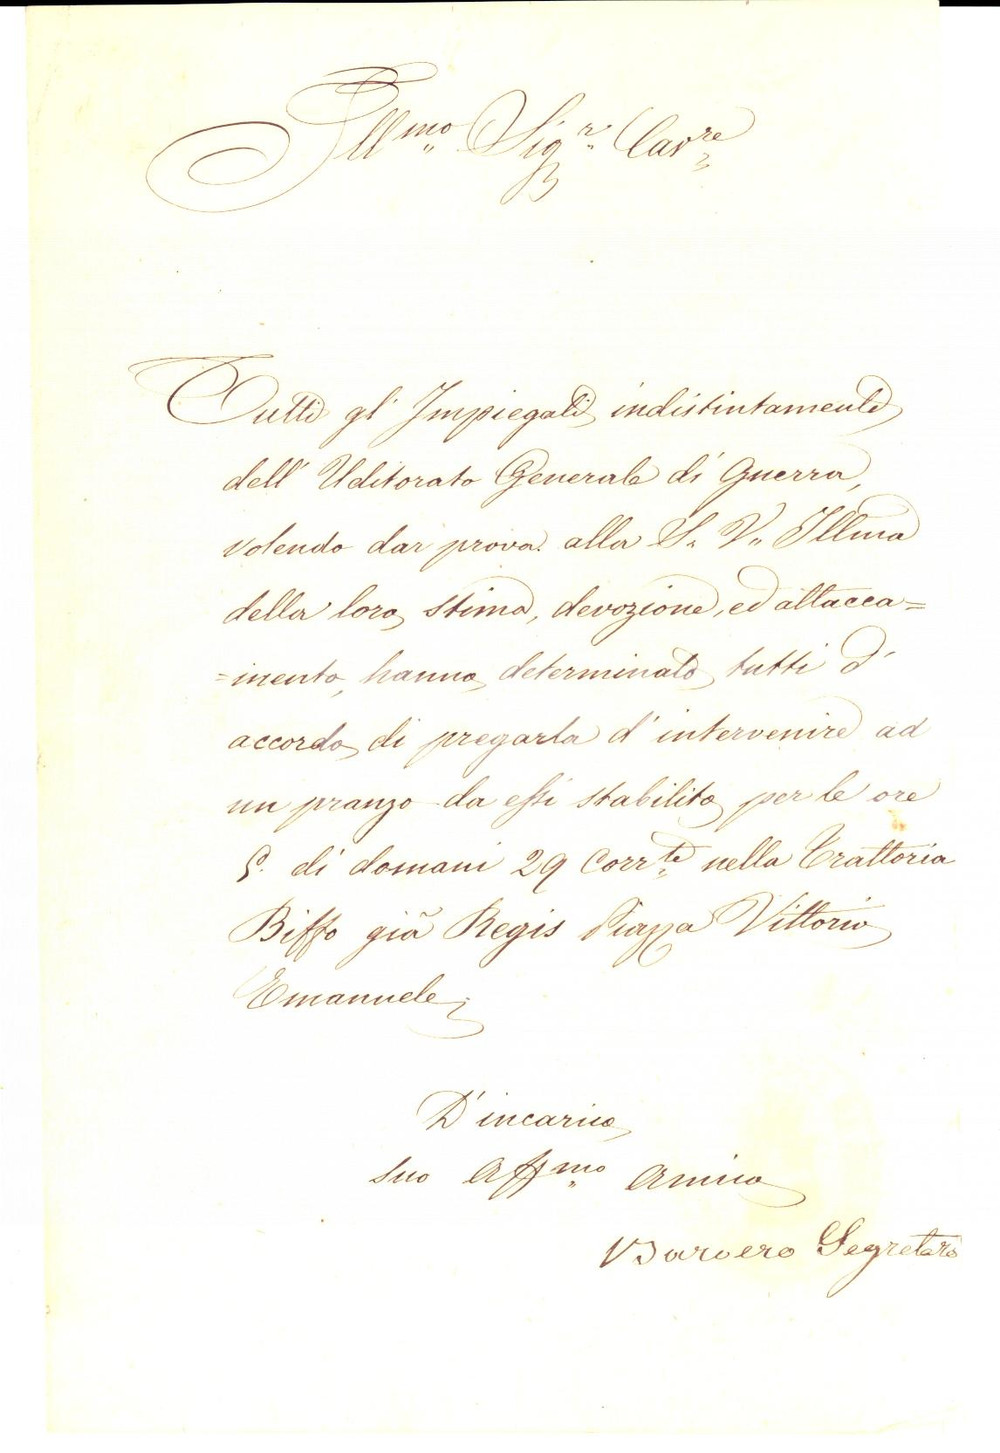 Ill.mo Sig.r Cav.re
Tutti gl' Impiegati indistintamente
dell' Uditorato Generale di Guerra,
volendo dar prova alla S. V. Illma
della loro stima, devozione, ed attacca=
=mento, hanno determinato tutti d'
accordo di pregarla d' intervenire ad
un pranzo da essi stabilito per le ore
5. di domani 29 Corr.te nella Trattoria
Biffo già Regis Piazza Vittorio
Emanuele;
D' incarico
Suo Aff.mo Amico
Barvero Segretaro